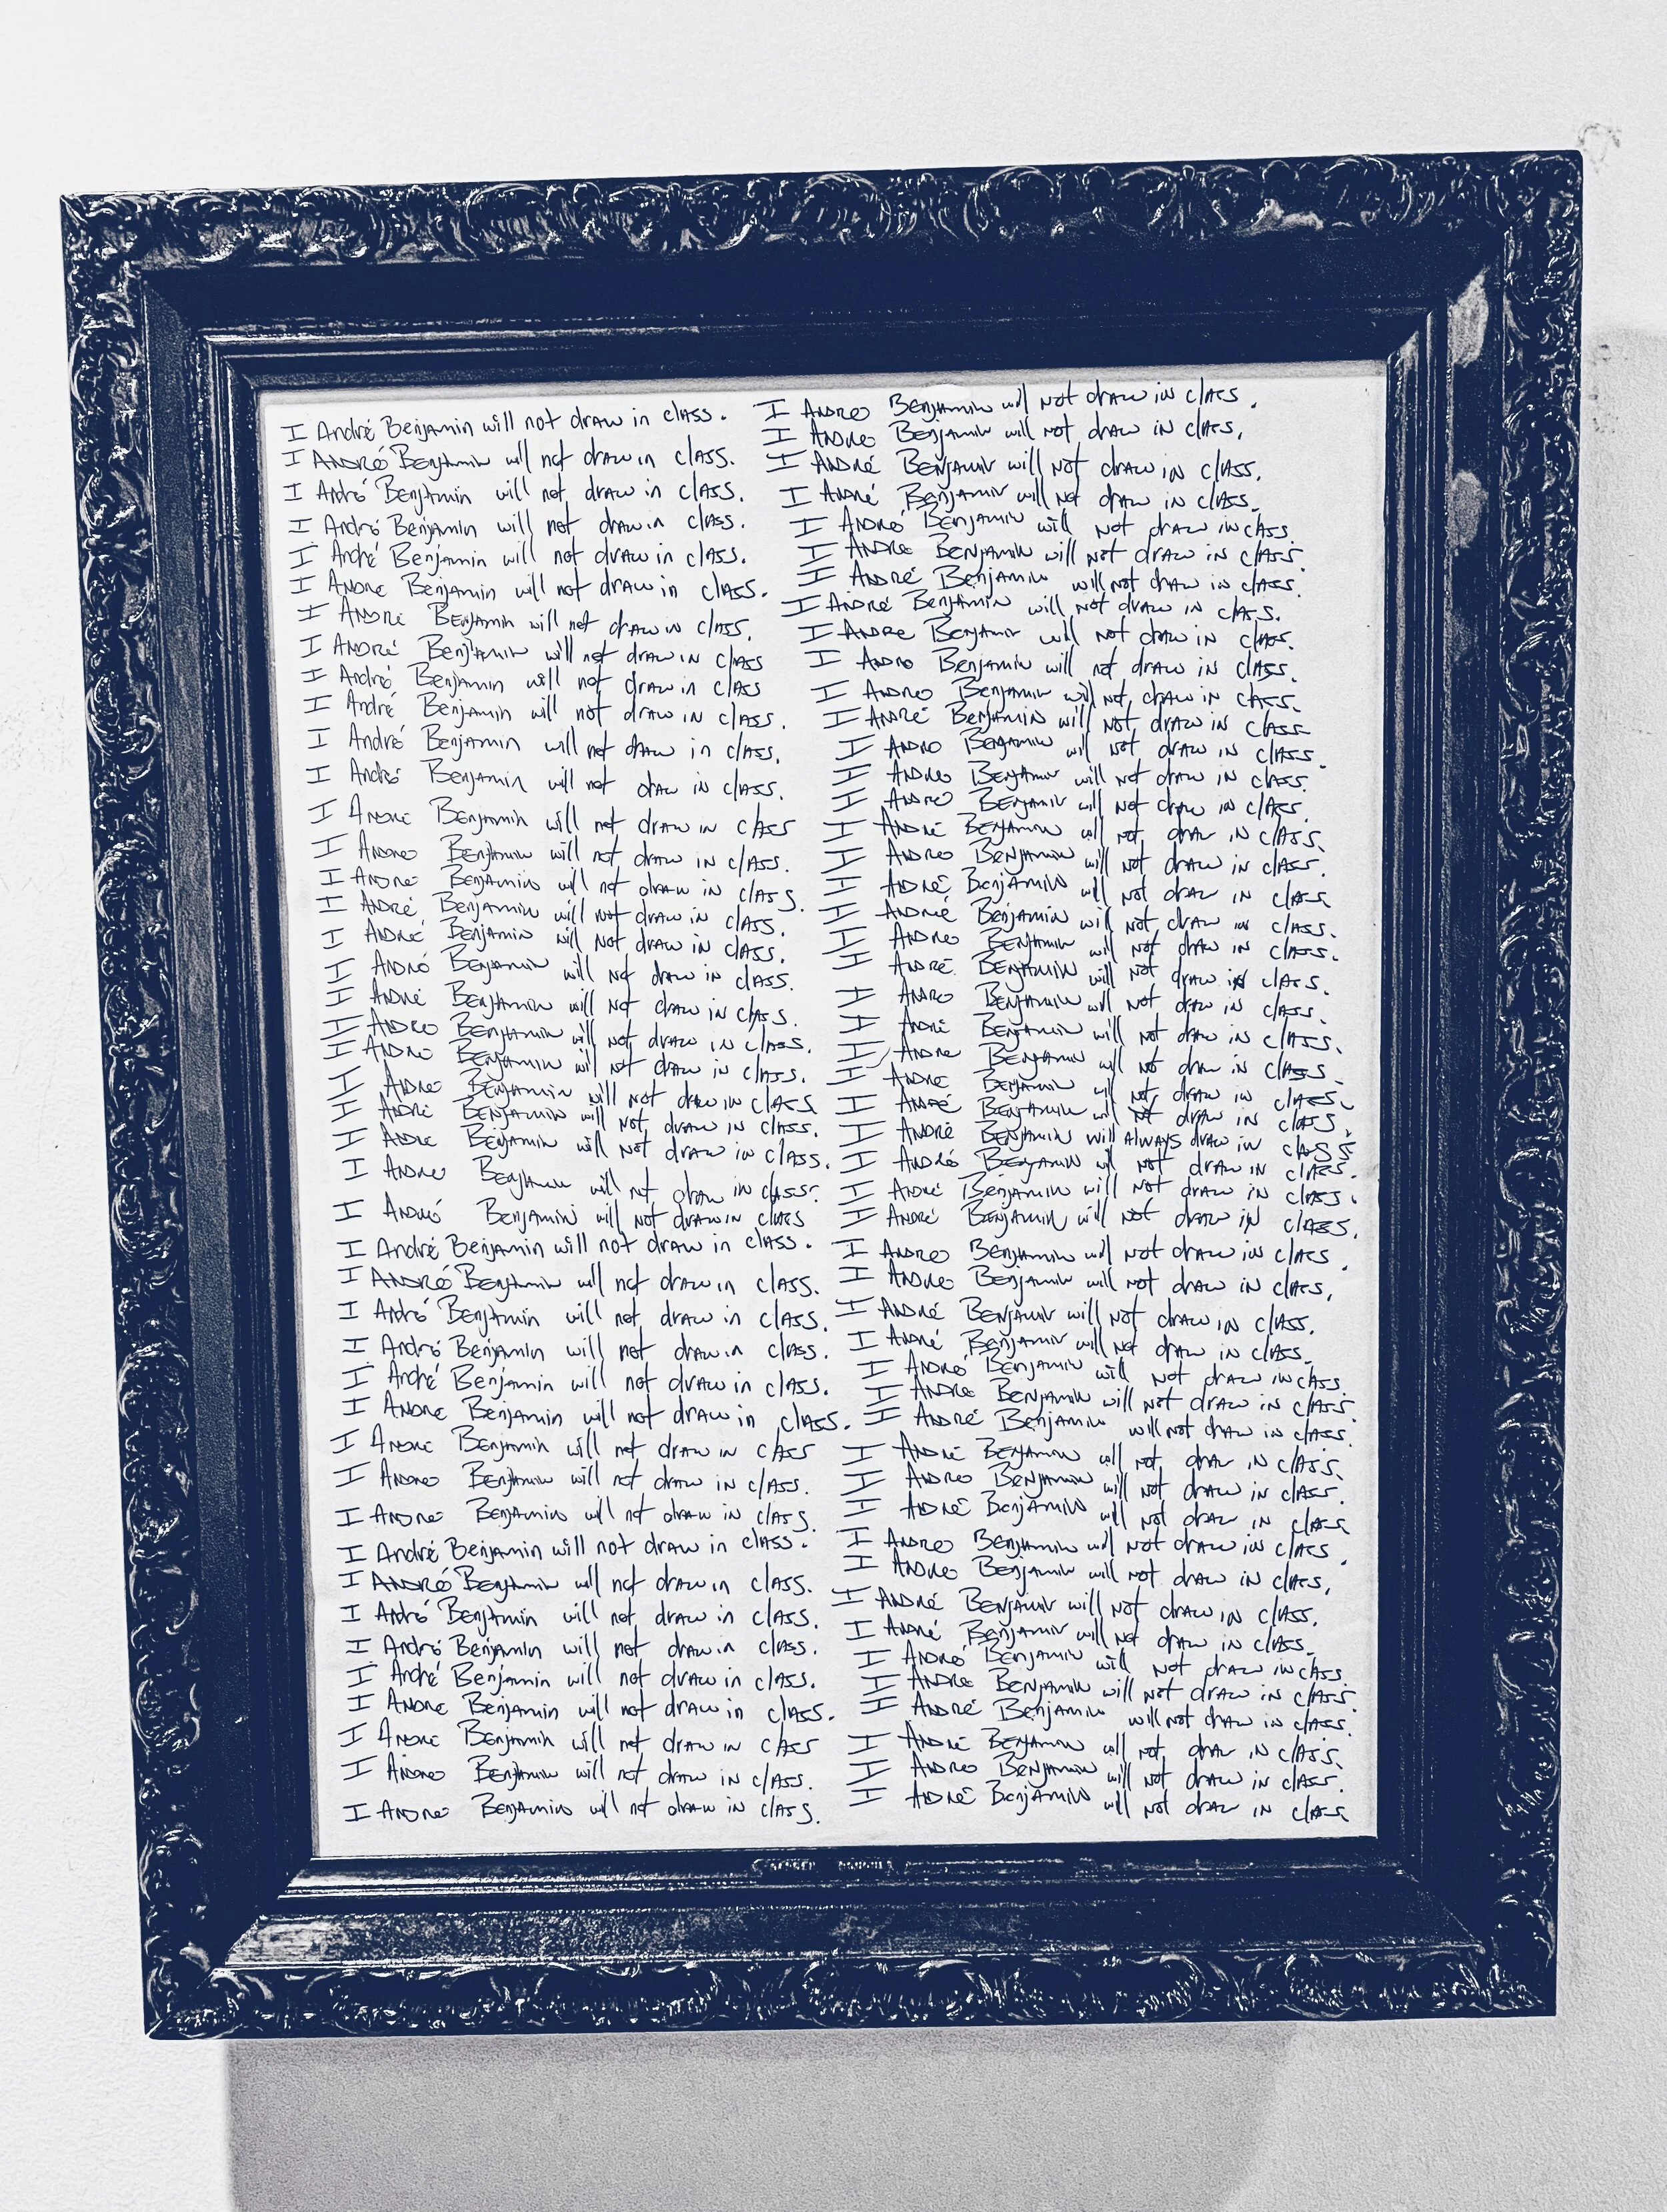 I André Benjamin will not draw in class.
I André Benjamin will not draw in class.
I André Benjamin will not draw in class.
I André Benjamin will not draw in class.
I André Benjamin will not draw in class.
I André Benjamin will not draw in class.
I André Benjamin will not draw in class.
I André Benjamin will not draw in class
I André Benjamin will not draw in class
I André Benjamin will not draw in class.
I André Benjamin will not draw in class.
I André Benjamin will not draw in class.
I André Benjamin will not draw in class
I André Benjamin will not draw in class.
I André Benjamin will not draw in class.
I André Benjamin will not draw in class.
I André Benjamin will not draw in class.
I André Benjamin will not draw in class.
I André Benjamin will not draw in class.
I André Benjamin will not draw in class.
I André Benjamin will not draw in class.
I André Benjamin will not draw in class
I André Benjamin will not draw in class.
I André Benjamin will not draw in class.
I André Benjamin will not draw in class.
I André Benjamin will not draw in class
I André Benjamin will not draw in class.
I André Benjamin will not draw in class.
I André Benjamin will not draw in class.
I André Benjamin will not draw in class.
I André Benjamin will not draw in class.
I André Benjamin will not draw in class.
I André Benjamin will not draw in class
I André Benjamin will not draw in class.
I André Benjamin will not draw in class.
I André Benjamin will not draw in class.
I André Benjamin will not draw in class.
I André Benjamin will not draw in class.
I André Benjamin will not draw in class.
I André Benjamin will not draw in class.
I André Benjamin will not draw in class.
I André Benjamin will not draw in class
I André Benjamin will not draw in class.
I André Benjamin will not draw in class.
I André Benjamin will not draw in class.
I André Benjamin will not draw in class.
I André Benjamin will not draw in class.
I André Benjamin will not draw in class.
I André Benjamin will not draw in class.
I André Benjamin will not draw in class.
I André Benjamin will not draw in class.
I André Benjamin will not draw in class.
I André Benjamin will not draw in class.
I André Benjamin will not draw in class.
I André Benjamin will not draw in class.
I André Benjamin will not draw in class
I André Benjamin will not draw in class.
I André Benjamin will not draw in class.
I André Benjamin will not draw in class.
I André Benjamin will not draw in class.
I André Benjamin will not draw in class.
I André Benjamin will not draw in class
I André Benjamin will not draw in class.
I André Benjamin will not draw in class.
I André Benjamin will not draw in class.
I André Benjamin will not draw in class.
I André Benjamin will not draw in class.
I André Benjamin will not draw in class.
I André Benjamin will not draw in class.
I André Benjamin will not draw in class.
I André Benjamin will ALWAYS draw in class
I André Benjamin will not draw in class.
I André Benjamin will not draw in class.
I André Benjamin will not draw in class.
I André Benjamin will not draw in class.
I André Benjamin will not draw in class.
I André Benjamin will not draw in class.
I André Benjamin will not draw in class.
I André Benjamin will not draw in class.
I André Benjamin will not draw in class.
I André Benjamin will not draw in class.
I André Benjamin will not draw in class.
I André Benjamin will not draw in class.
I André Benjamin will not draw in class
I André Benjamin will not draw in class.
I André Benjamin will not draw in class.
I André Benjamin will not draw in class.
I André Benjamin will not draw in class.
I André Benjamin will not draw in class.
I André Benjamin will not draw in class.
I André Benjamin will not draw in class.
I André Benjamin will not draw in class.
I André Benjamin will not draw in class.
I André Benjamin will not draw in class